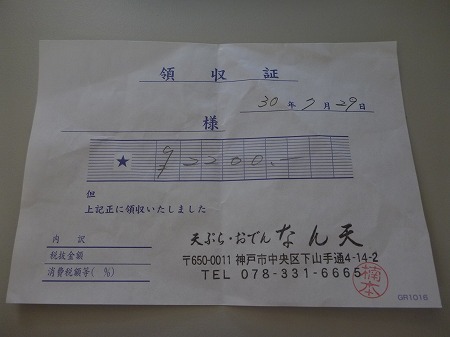 領収証
30年7月29日
様
★ ¥2200.―
但
上記正に領収いたしました
内訳
税抜金額
消費税額等( %)
天ぷら・おでん なん天
〒650-0011 神戸市中央区下山手通4-14-2
TEL 078-331-6665
楠本
GR1016